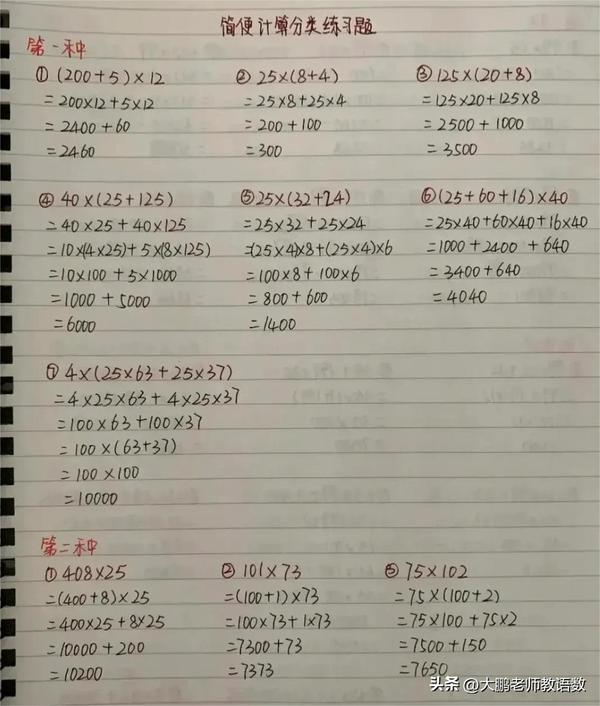 简便计算分类练习题
第一种
① (200+5)×12
=200×12+5×12
=2400+60
=2460
② 25×(8+4)
=25×8+25×4
=200+100
=300
③ 125×(20+8)
=125×20+125×8
=2500+1000
=3500
④ 40×(25+125)
=40×25+40×125
=10×(4×25)+5×(8×125)
=10×100+5×1000
=1000+5000
=6000
⑤ 25×(32+24)
=25×32+25×24
=(25×4)×8+(25×4)×6
=100×8+100×6
=800+600
=1400
⑥ (25+60+16)×40
=25×40+60×40+16×40
=1000+2400+640
=3400+640
=4040
⑦ 4×(25×63+25×37)
=4×25×63+4×25×37
=100×63+100×37
=100×(63+37)
=100×100
=10000
第二种
① 408×25
=(400+8)×25
=400×25+8×25
=10000+200
=10200
② 101×73
=(100+1)×73
=100×73+1×73
=7300+73
=7373
③ 75×102
=75×(100+2)
=75×100+75×2
=7500+150
=7650
头条 @大鹏老师教语数